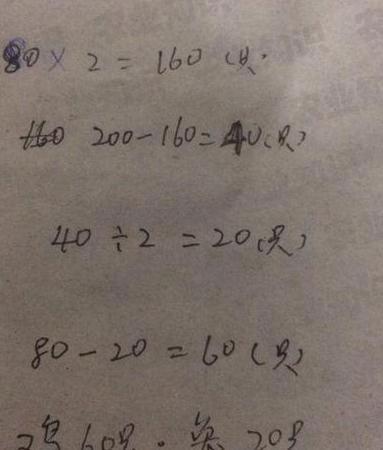 80 × 2 = 160 (只)
160 200-160=40(只)
40÷2 =20(只)
80-20=60(只)
鸡60只.兔20只